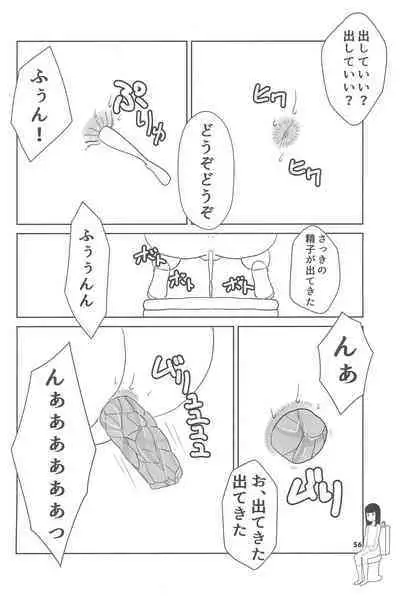 出していい？
出していい？
ヒク
ヒク
どうぞどうぞ
ぷりゅ
ふぅん！
さっきの
精子が出てきた
ボト
ボト
ボト
ボト
ふぅぅんん
んあ
ぶり
お、出てきた
出てきた
ムリュリュュュ
んあああああぁっ
56